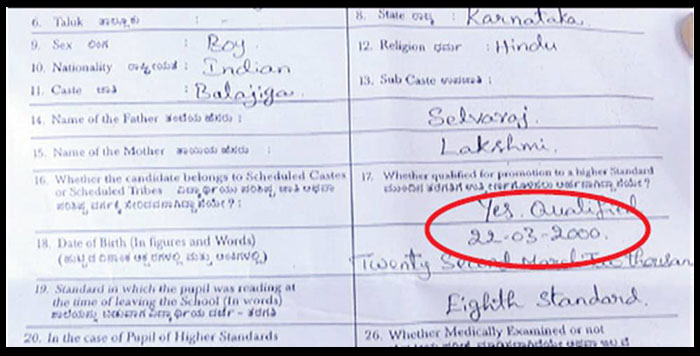 6. Taluk ತಾಲ್ಲೂಕು :
8. State ರಾಜ್ಯ : Karnataka
9. Sex ಲಿಂಗ : Boy
12. Religion ಧರ್ಮ : Hindu
10. Nationality ರಾಷ್ಟ್ರೀಯತೆ : Indian
13. Sub Caste ಉಪಜಾತಿ :
11. Caste ಜಾತಿ : Balajiga
14. Name of the Father ತಂದೆಯ ಹೆಸರು :
Selvaraj.
15. Name of the Mother ತಾಯಿಯ ಹೆಸರು :
Lakshmi.
16. Whether the candidate belongs to Scheduled Castes
or Scheduled Tribes
17. Whether qualified for promotion to a higher Standard
Yes. Qualified
18. Date of Birth (In figures and Words)
22-03-2000.
Twenty Second March Two thousan
19. Standard in which the pupil was reading at
the time of leaving the School (In words)
Eighth Standard.
20. In the case of Pupil of Higher Standards
26. Whether Medically Examined or not